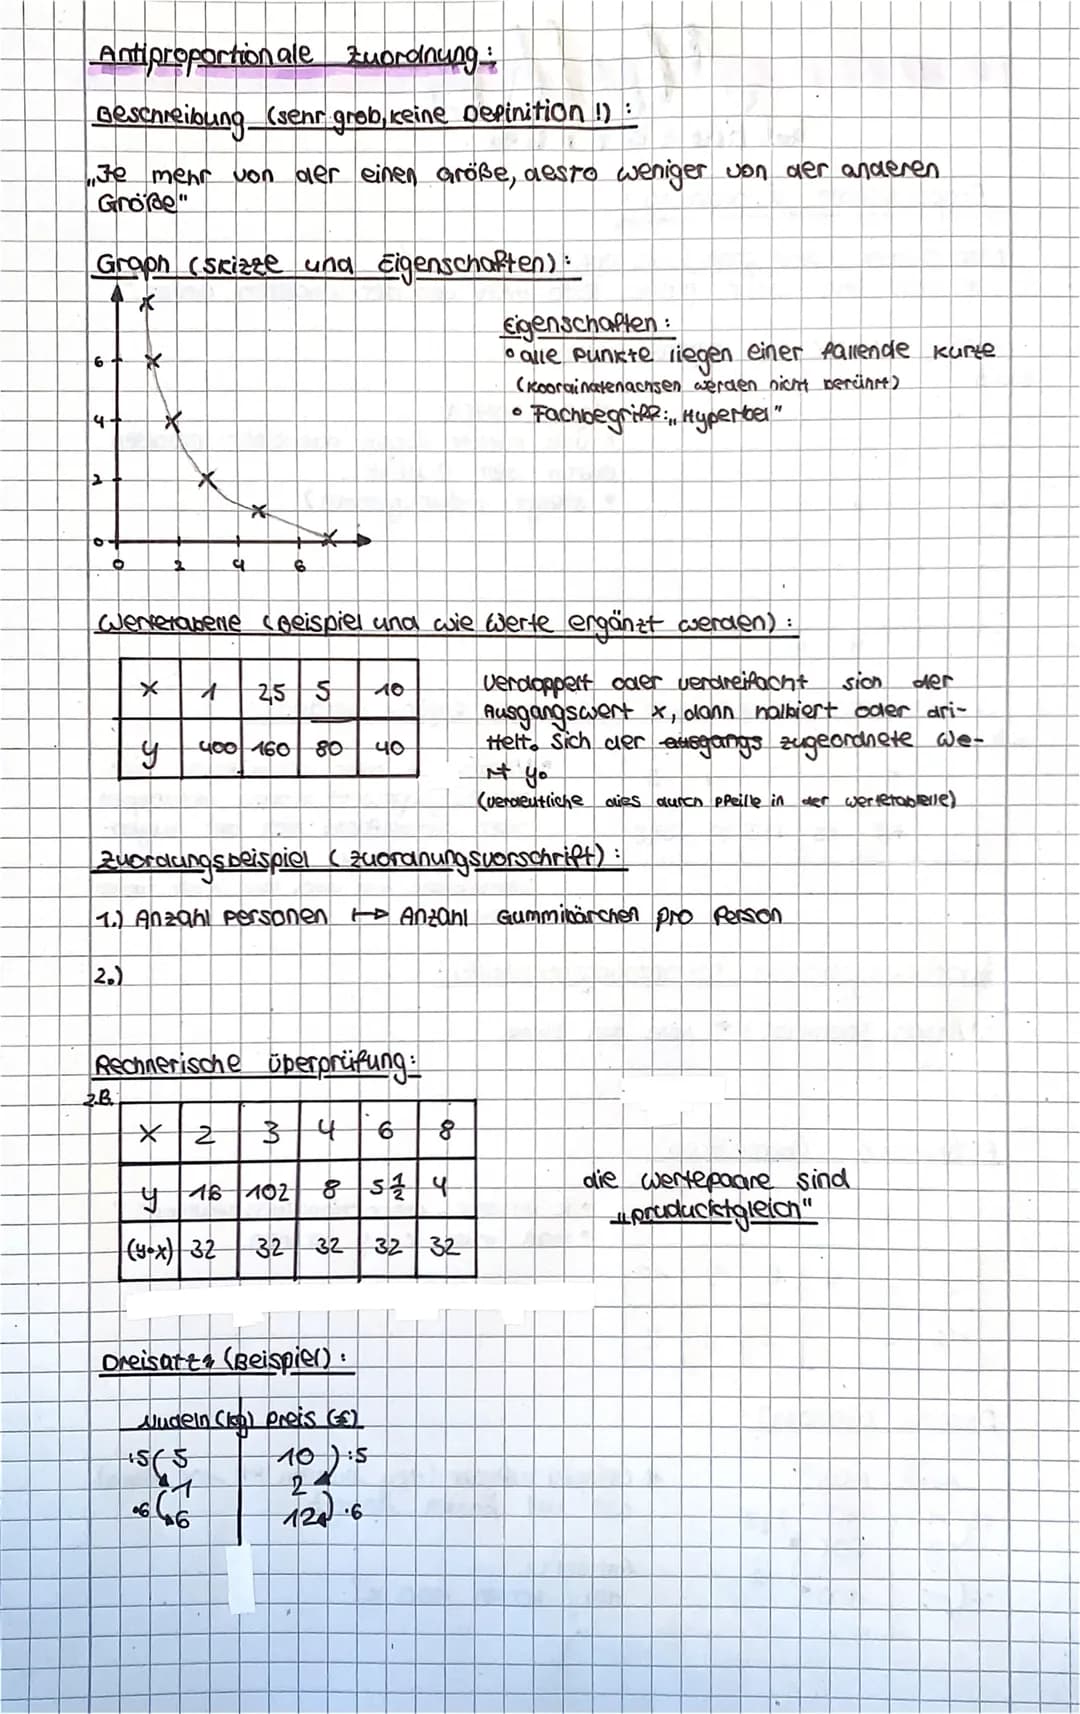 Antiproportionale Zuordnung:
Beschreibung (sehr grob, keine Definition!):
„Je mehr von der einen Größe, desto weniger von der anderen
Größe"
Graph (Skizze und Eigenschaften):
Eigenschaften:
• alle Punkte liegen einer fallende Kurze
(Koordinatenachsen werden nicht berührt)
• Fachbegriff: „Hyperbel"
6
4
2
0
0 2 4 6
Wertetabelle (Beispiel und wie Werte ergänzt werden):
x 1 2,5 5 10
y 400 160 80 40
Verdoppelt oder verdreifacht sich der
Ausgangswert x, dann halbiert oder dri-
ttelt sich der ausgangs zugeordnete We-
rt y.
(verdeutliche dies durch Pfeille in der Wertetabelle)
Zuordungsbeispiel (Zuordnungsvorschrift):
1.) Anzahl Personen ↦ Anzahl Gummibärchen pro Person
2.)
Rechnerische Überprüfung:
z.B.
x 2 3 4 6 8
y 16 102 8 5 1/2 4
(y•x) 32 32 32 32 32
die Wertepaare sind
„pruducktgleich"
Dreisatz (Beispiel):
Nudeln (kg) Preis (€)
:5 5 10 :5
1 2
•6 6 12 •6